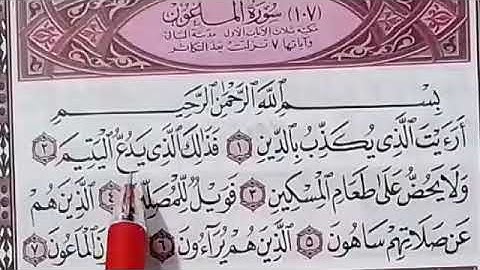 (١٠٧) سورة الماعون
مكية ثلاث الآيات الأول مدنية البقية
وآياتها ٧ نزلت بعد التكاثر
بِسْمِ اللَّهِ الرَّحْمَٰنِ الرَّحِيمِ
أَرَءَيْتَ الَّذِي يُكَذِّبُ بِالدِّينِ ١ فَذَٰلِكَ الَّذِي يَدُعُّ الْيَتِيمَ ٢
وَلَا يَحُضُّ عَلَىٰ طَعَامِ الْمِسْكِينِ ٣ فَوَيْلٌ لِّلْمُصَلِّ ٤ الَّذِينَ هُمْ
عَن صَلَاتِهِمْ سَاهُونَ ٥ الَّذِينَ هُمْ يُرَآءُونَ ٦ نَ الْمَاعُونَ ٧